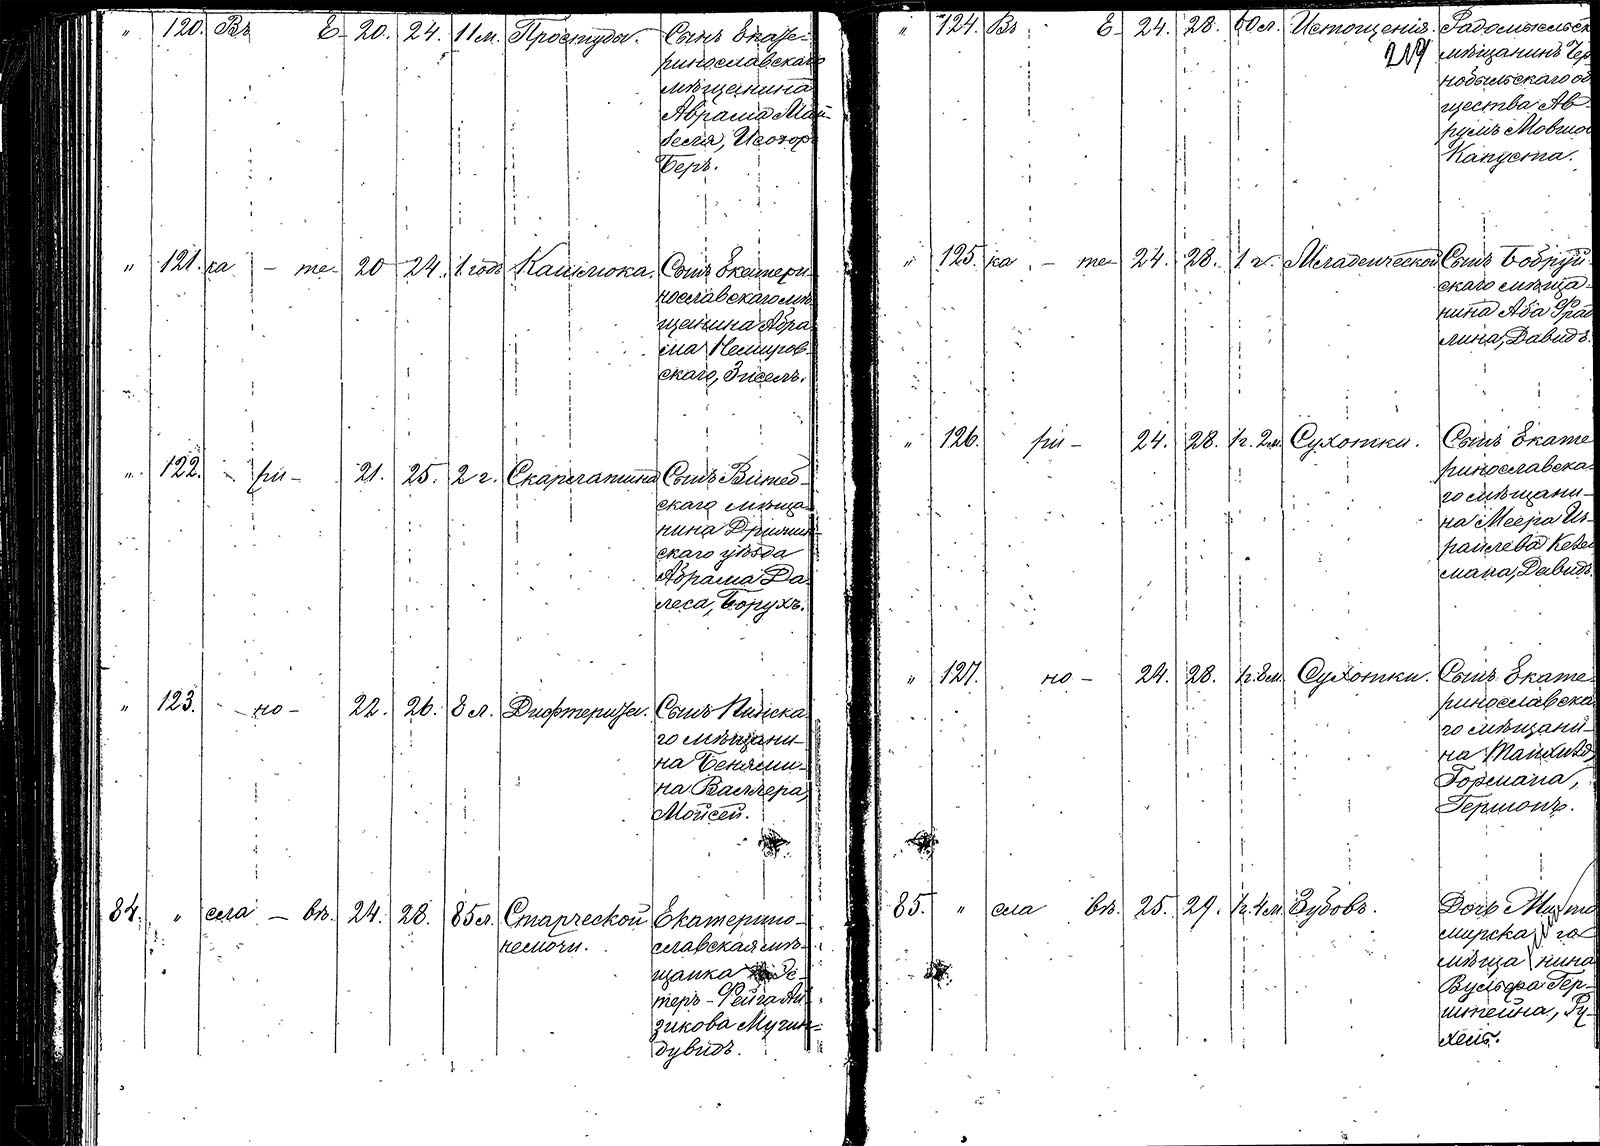 " 120. Въ Е- 20. 24. 11 м. Простуды. Сынъ Екате-
ринославскаго
мѣщанина
Аврама Май-
беля,
Беръ.
" 121. ка - те- 20 24. 1 годъ Кашлюка. Сынъ Екатери-
нославскаго мѣ-
щанина Абра-
ма Немиров-
скаго, Зиселъ.
" 122. ри- 21. 25. 2 г. Скарлатина Сынъ Витеб-
скаго мѣща-
нина
скаго уѣзда
Абрама Да-
леса, Борухъ.
" 123. но- 22. 26. 8 л. Дифтерита. Сынъ Пинска-
го мѣщани-
на Бенями-
на Валлера,
Мойсей.
84. " сла - вѣ. 24. 28. 85 л. Старческой Екатерино-
немочи. славская мѣ-
щанка Эс-
теръ-Фейга Ай-
зикова Мугин-
дувидъ.
" 124. Въ Е- 24. 28. 60 л. Истощенія. Радомысльск
219 мѣщанинъ Чер-
нобыльскаго об
щества Ав-
румъ Мовшов
Капуста.
" 125. ка - те- 24. 28. 1 г. Младенческой Сынъ Бобруй-
скаго мѣща-
нина Аба Фрад
лина, Давидъ.
" 126. ри- 24. 28. 1 г. 2 м. Сухотки. Сынъ Екате-
ринославска-
го мѣщани-
на Меера Из-
раилева
мана, Давидъ.
" 127. но- 24. 28. 1 г. 8 м. Сухотки. Сынъ Екате-
ринославска-
го мѣщани-
на
Гормана,
Гершонъ.
85. " сла вѣ. 25. 29. 1 г. 4 м. Зубовъ. Дочь Жито
мирска го
мѣща нина
Вульфа Гер-
штейна, Ру-
хель.